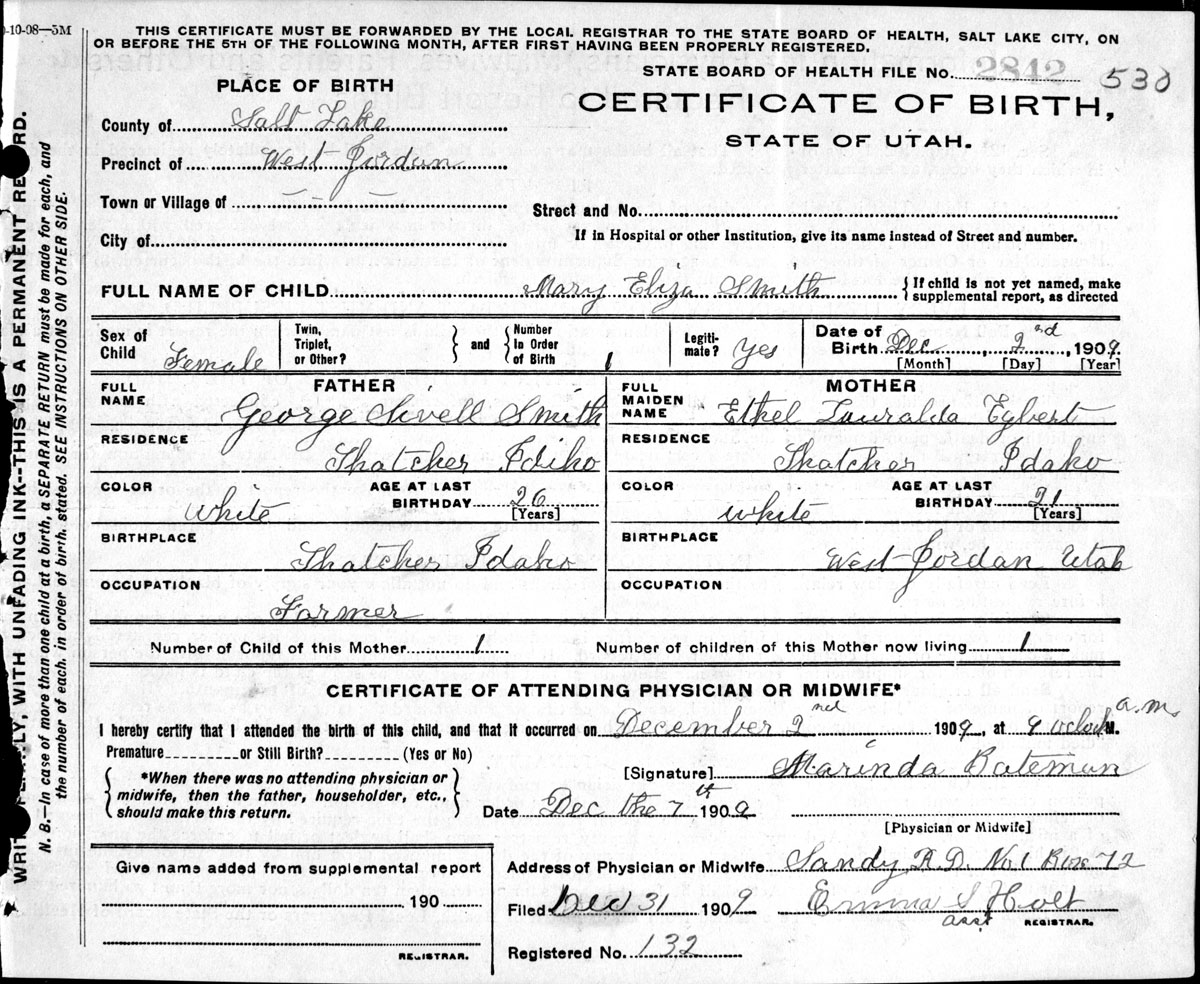 0-10-08—5M
THIS CERTIFICATE MUST BE FORWARDED BY THE LOCAL REGISTRAR TO THE STATE BOARD OF HEALTH, SALT LAKE CITY, ON
OR BEFORE THE 5TH OF THE FOLLOWING MONTH, AFTER FIRST HAVING BEEN PROPERLY REGISTERED.
STATE BOARD OF HEALTH FILE No. 2842 530
PLACE OF BIRTH
CERTIFICATE OF BIRTH,
STATE OF UTAH.
County of Salt Lake
Precinct of West Jordan
Town or Village of — — —
Street and No.
City of
If in Hospital or other Institution, give its name instead of Street and number.
FULL NAME OF CHILD Mary Eliza Smith { If child is not yet named, make
supplemental report, as directed
Sex of Child Female
Twin, Triplet, or Other? } and { Number In Order of Birth 1
Legiti-mate? Yes
Date of Birth Dec, 2nd, 1909.
[Month] [Day] [Year]
FATHER
FULL NAME George Sivell Smith
RESIDENCE Thatcher Idiho
COLOR White AGE AT LAST BIRTHDAY 26 [Years]
BIRTHPLACE Thatcher Idaho
OCCUPATION Farmer
MOTHER
FULL MAIDEN NAME Ethel Lauralda Egbert
RESIDENCE Thatcher Idaho
COLOR White AGE AT LAST BIRTHDAY 21 [Years]
BIRTHPLACE West Jordan Utah
OCCUPATION
Number of Child of this Mother 1 Number of children of this Mother now living 1
CERTIFICATE OF ATTENDING PHYSICIAN OR MIDWIFE*
I hereby certify that I attended the birth of this child, and that it occurred on December 2nd 1909, at 9 oclock a.m. M.
Premature or Still Birth? (Yes or No)
{ *When there was no attending physician or
midwife, then the father, householder, etc.,
should make this return. }
[Signature] Marinda Bateman
Date Dec the 7th 1909
[Physician or Midwife]
Give name added from supplemental report
190
REGISTRAR.
Address of Physician or Midwife Sandy R.D. No. 1 Box 72
Filed Dec 31 1909 Emma S Holt
asst REGISTRAR.
Registered No. 132
WRITE PLAINLY, WITH UNFADING INK--THIS IS A PERMANENT RECORD.
N. B.—In case of more than one child at a birth, a SEPARATE RETURN must be made for each, and
the number of each, in order of birth, stated. SEE INSTRUCTIONS ON OTHER SIDE.